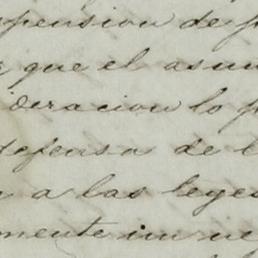 pension de p
que el asun
ideracion lo p
defensa de l
a las leyes
mente in